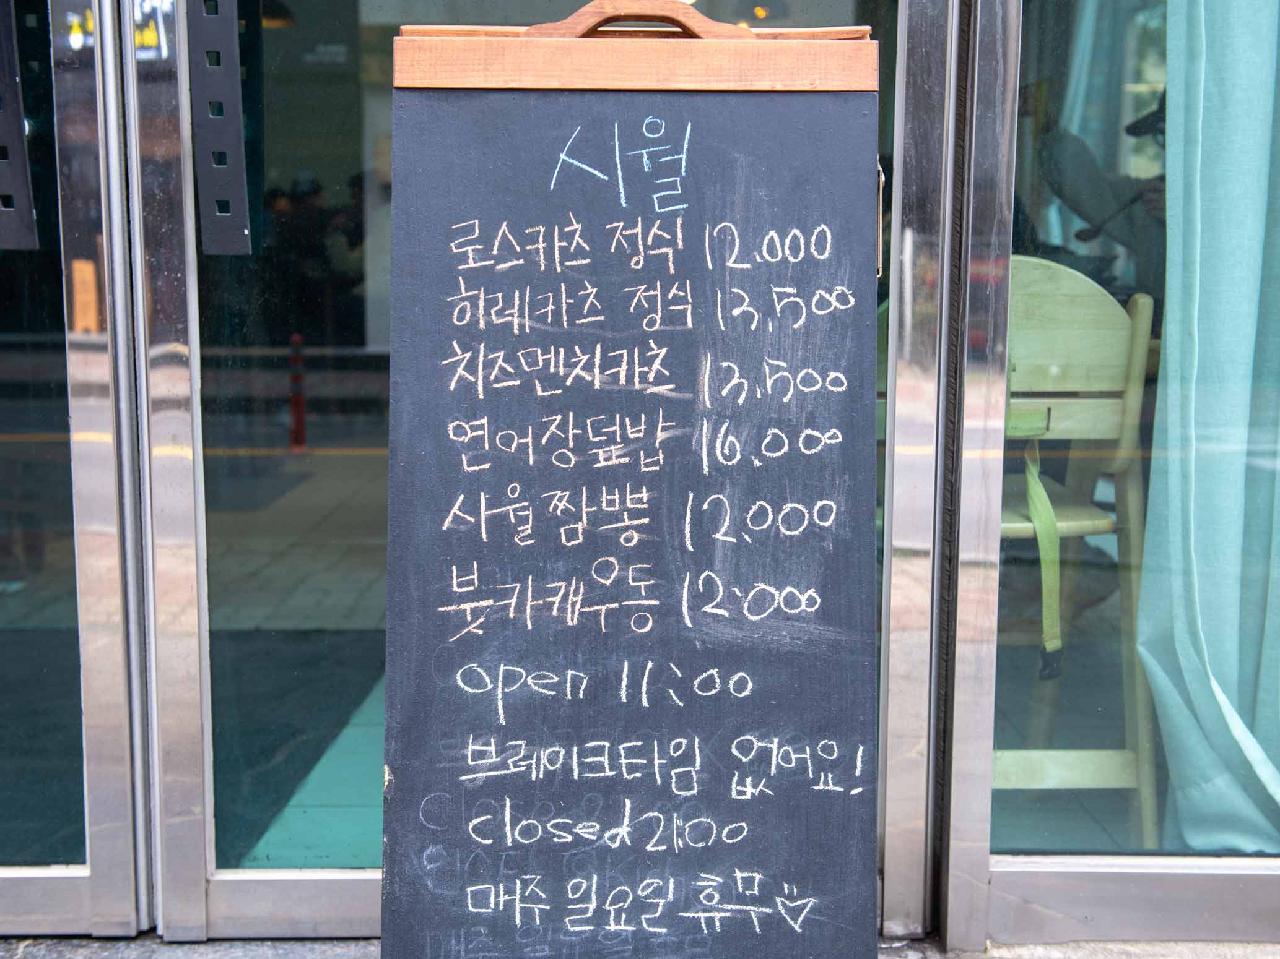 시월
로스카츠 정식 12.000
히레카츠 정식 13.500
치즈멘치카츠 13.500
연어장덮밥 16.000
시월짬뽕 12.000
붓카케우동 12.000
open 11:00
브레이크타임 없어요!
closed 21:00
매주 일요일 휴무♡